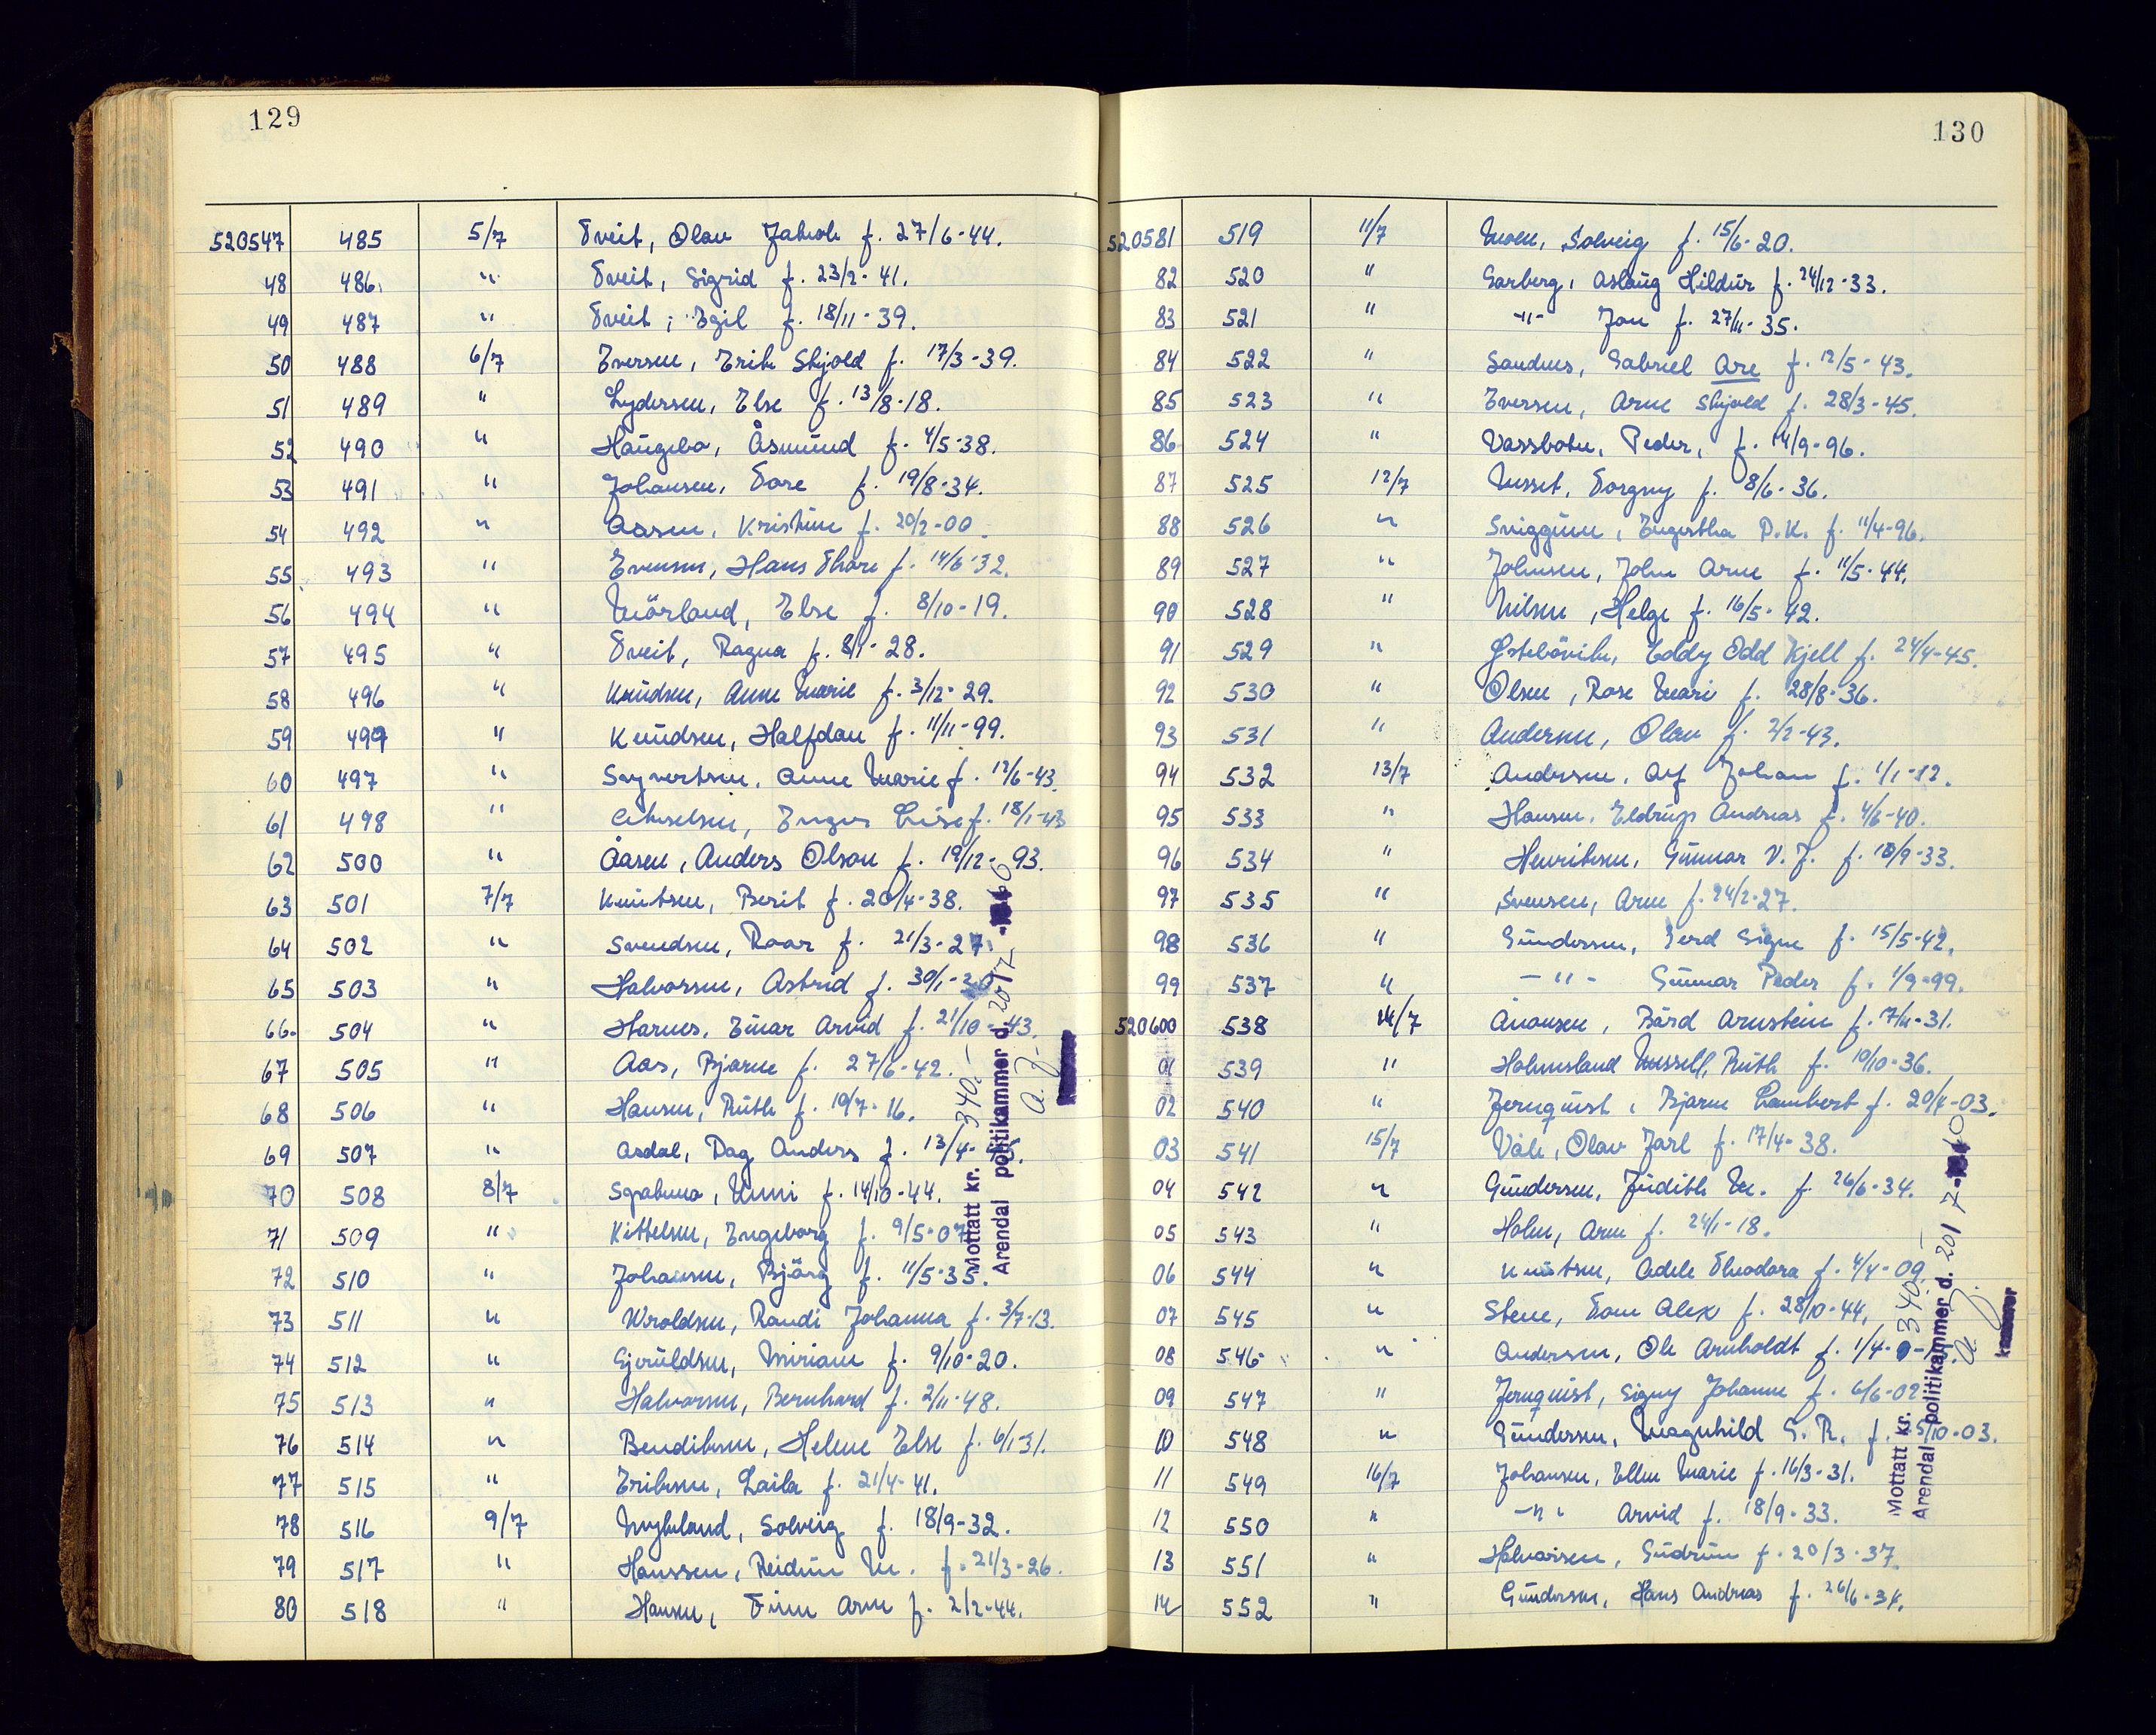 129
520547 485 5/7 Tveit, Olav Jakob f. 27/6-44.
48 486 " Tveit, Sigrid f. 23/2-41.
49 487 " Tveit, Egil f. 18/11-39.
50 488 6/7 Eversen, Erik Skjold f. 17/3-39.
51 489 " Lydersen, Else f. 13/8-18.
52 490 " Haugebo, Åsmund f. 4/5-38.
53 491 " Johansen, Tore f. 19/8-34.
54 492 " Aasen, Kristine f. 20/2-00.
55 493 " Evensen, Hans Thore f. 14/6-32.
56 494 " Mörland, Else f. 8/10-19.
57 495 " Tveit, Ragna f. 8/1-28.
58 496 " Knudsen, Anne Marie f. 3/12-29.
59 499 " Knudsen, Halfdan f. 11/11-99.
60 497 " Syvertsen, Anne Marie f. 12/6-43.
61 498 " f. 18/1-43
62 500 " Åasen, Anders Olson f. 19/12-93.
63 501 7/7 Knutsen, Berit f. 20/4-38.
64 502 " Svendsen, Roar f. 21/3-27.
65 503 " Halvorsen, Astrid f. 30/1-20
66 504 " Harnes, Einar Arvid f. 21/10-43.
67 505 " Aas, Bjarne f. 27/6-42.
68 506 " Hansen, Ruth f. 19/7-16.
69 507 " Asdal, Dag Anders f. 13/4-
70 508 8/7 Unni f. 14/10-44.
71 509 " Kittelsen, Engeborg f. 9/5-07
72 510 " Johansen, Bjørg f. 11/5-35.
73 511 " Wroldsen, Randi Johanna f. 3/7-13.
74 512 " Gjeruldsen, Miriam f. 9/10-20.
75 513 " Halvorsen, Bernhard f. 2/11-48.
76 514 " Bendiksen, Helene Else f. 6/1-31.
77 515 " Eriksen, Laila f. 21/4-41.
78 516 9/7 Mykland, Solveig f. 18/9-32.
79 517 " Hanssen, Reidun M. f. 21/3-26.
80 518 " Hansen, Finn Arne f. 2/2-44.
Mottatt kr. 340.-
Arendal politikammer d. 20/7-60
130
520581 519 11/7 Moen, Solveig f. 15/6-20.
82 520 " Garberg, Aslaug Hildur f. 24/12-33.
83 521 " -"- Jan f. 27/11-35.
84 522 " Sandnes, Gabriel Are f. 12/5-43.
85 523 " Eversen, Arne Skjold f. 28/3-45.
86 524 " Vassbotn, Peder, f. 14/9-96.
87 525 12/7 Messel, Torgny f. 8/6-36.
88 526 " P.K. f. 11/4-96.
89 527 " Johnsen, John Arne f. 11/5-44.
90 528 " Nilsen, Helge f. 16/5-42.
91 529 " Eddy Odd Kjell f. 24/4-45.
92 530 " Olsen, Rose Mari f. 28/8-36.
93 531 " Andersen, Olav f. 2/2-43.
94 532 13/7 Andersen, Alf Johan f. 1/1-12.
95 533 " Hansen, Eldrup Andreas f. 4/6-40.
96 534 " Henriksen, Gunnar V. J. f. 10/9-33.
97 535 " Svensen, Arne f. 24/2-27.
98 536 " Gundersen, Gerd Signe f. 15/5-42.
99 537 " -"- Gunnar Peder f. 1/9-99.
520600 538 14/7 Aanonsen, Bård Arnstein f. 17/11-31.
01 539 " Holmesland Messell, Ruth f. 10/10-36.
02 540 " Jernquist, Bjarne Lambert f. 20/4-03.
03 541 15/7 Våle, Olav Jarl f. 17/4-38.
04 542 " Gundersen, Judith M. f. 26/6-34.
05 543 " Holm, Arne f. 24/1-18.
06 544 " Knutsen, Adele Theodora f. 4/4-09.
07 545 " Stene, Tom Alex f. 28/10-44.
08 546 " Andersen, Ole Arnholdt f. 1/4-
09 547 " Jernquist, Signy Johanne f. 6/6-02
10 548 " Gundersen, Magnhild G. R. f. 5/10-03.
11 549 16/7 Johansen, Ellen Marie f. 16/3-31.
12 550 " -"- Arvid f. 18/9-33.
13 551 " Halvorsen, Gudrun f. 20/3-37.
14 552 " Gundersen, Hans Andreas f. 26/6-34.
Mottatt kr. 340.-
Arendal politikammer d. 20/7-60